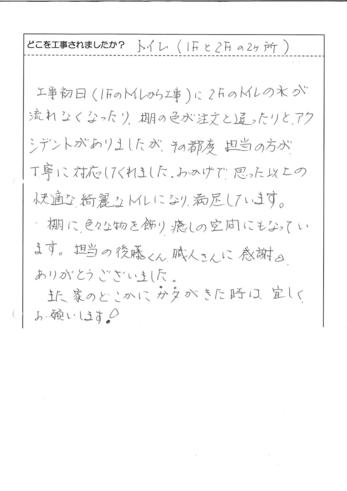 どこを工事されましたか? トイレ(1Fと2Fの2ヶ所)
工事初日(1Fのトイレから工事)に2Fのトイレの水が
流れなくなったり、棚の色が注文と違ったりと、アク
シデントがありましたが、その都度担当の方が、
丁寧に対応してくれました。おかげで、思った以上の
快適な綺麗なトイレになり、満足しています。
棚に、色々な物を飾り、癒しの空間にもなってい
ます。担当の後藤くん、職人さんに感謝。
ありがとうございました。
また家のどこかにガタがきた時は、宜しく
お願いします!